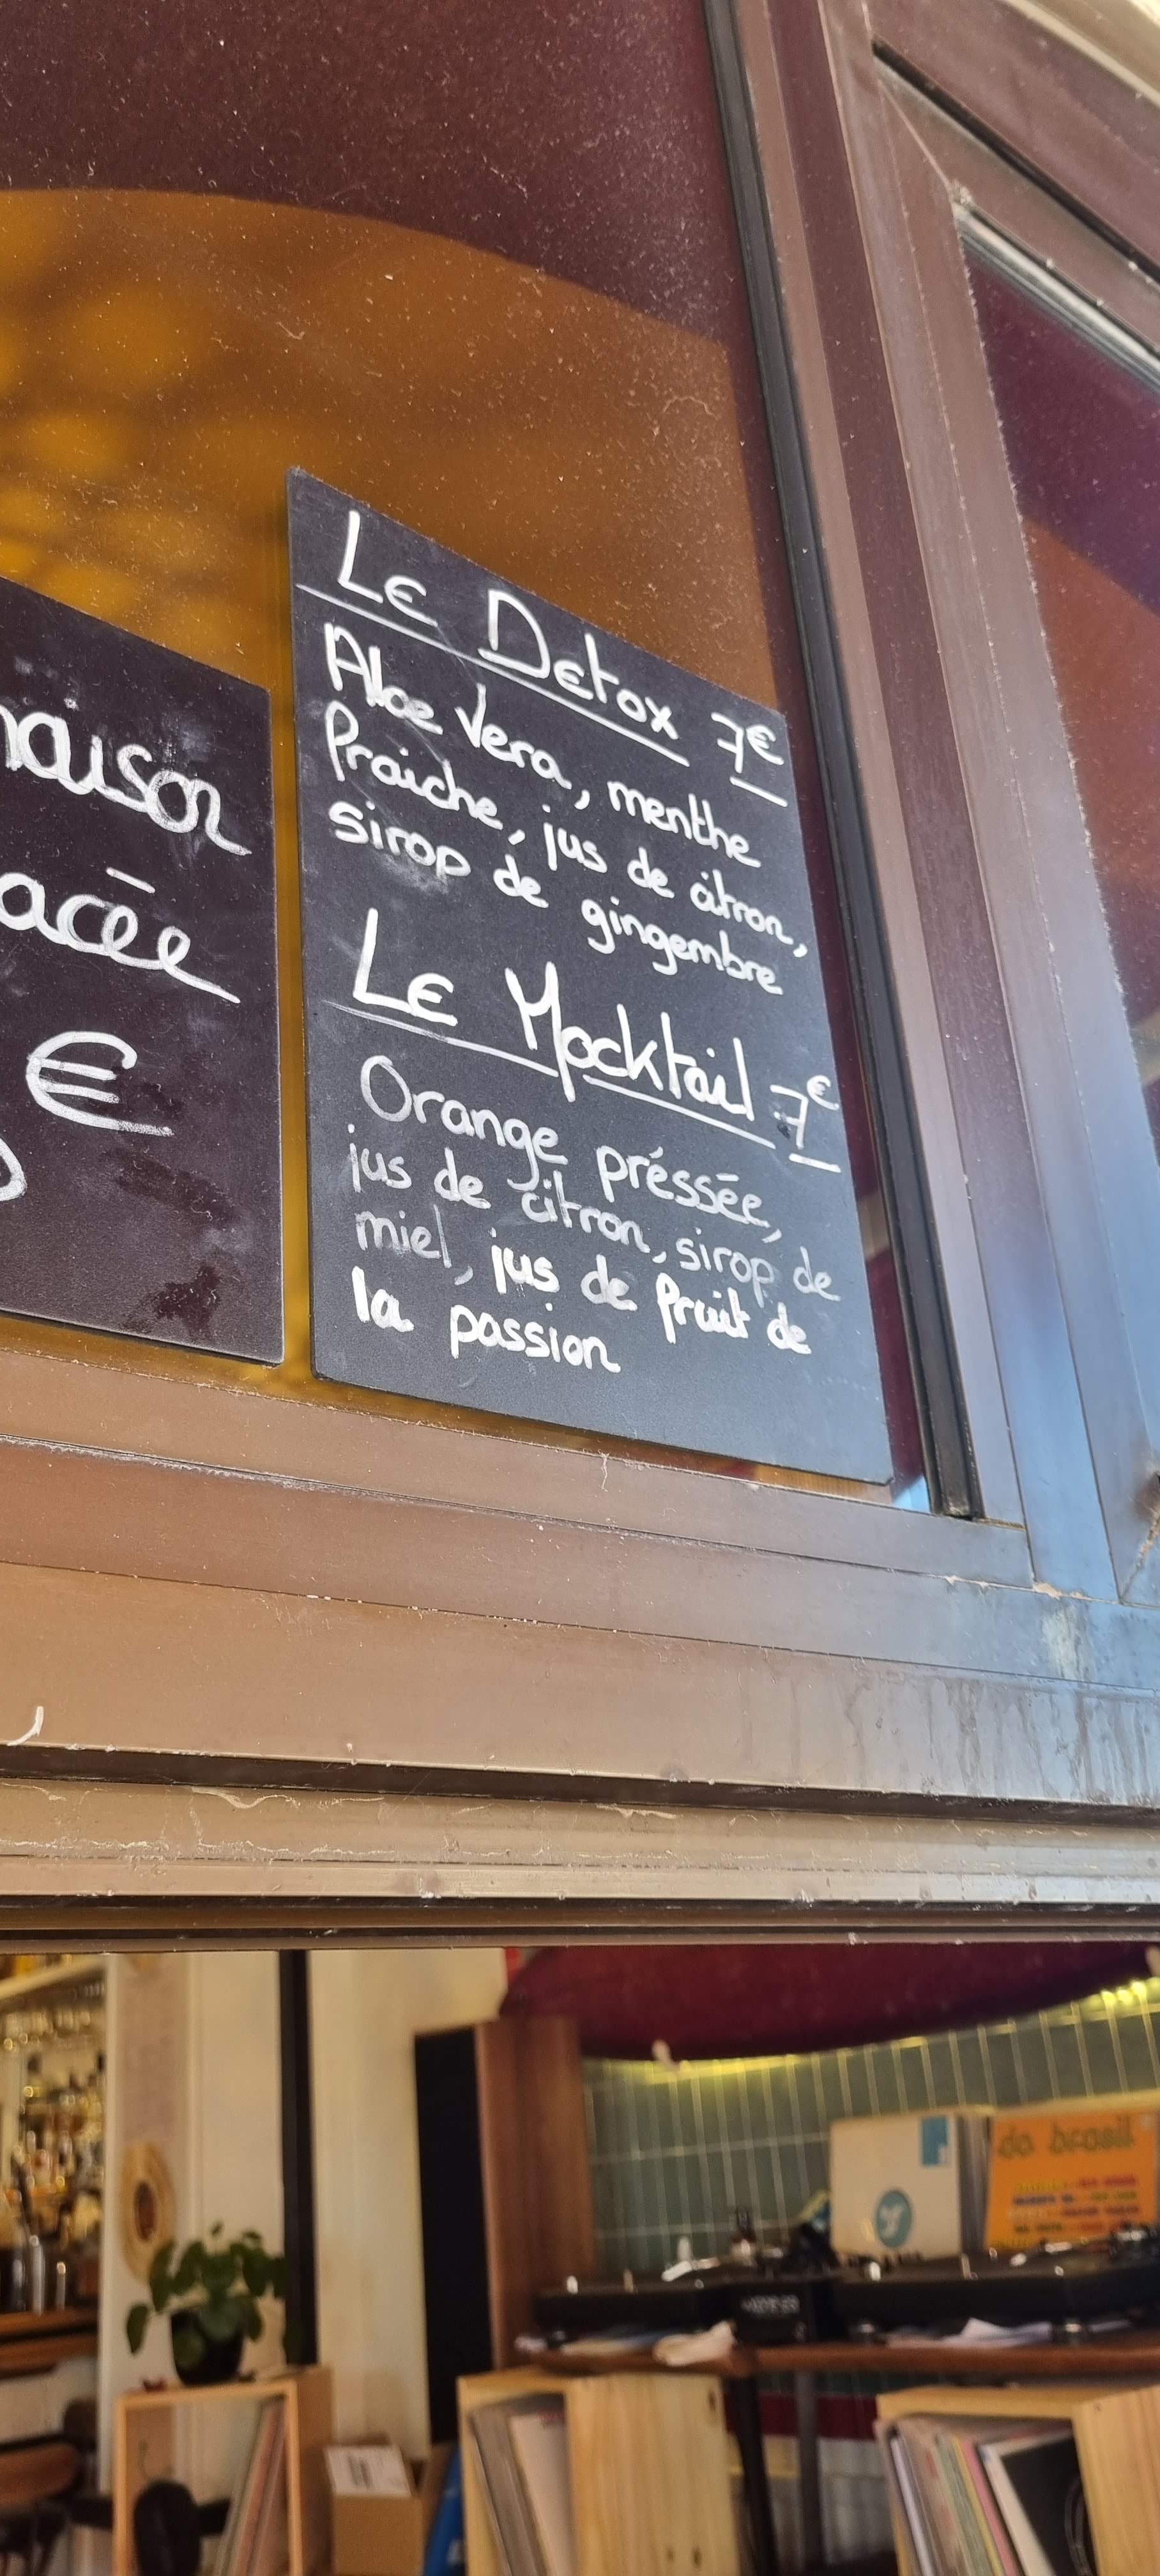 naison
acée
€
Le Detox 7€
Aloe Vera, menthe
Fraiche, jus de citron,
sirop de gingembre
Le Mocktail 7€
Orange préssée,
jus de citron, sirop de
miel, jus de fruit de
la passion
do brasil